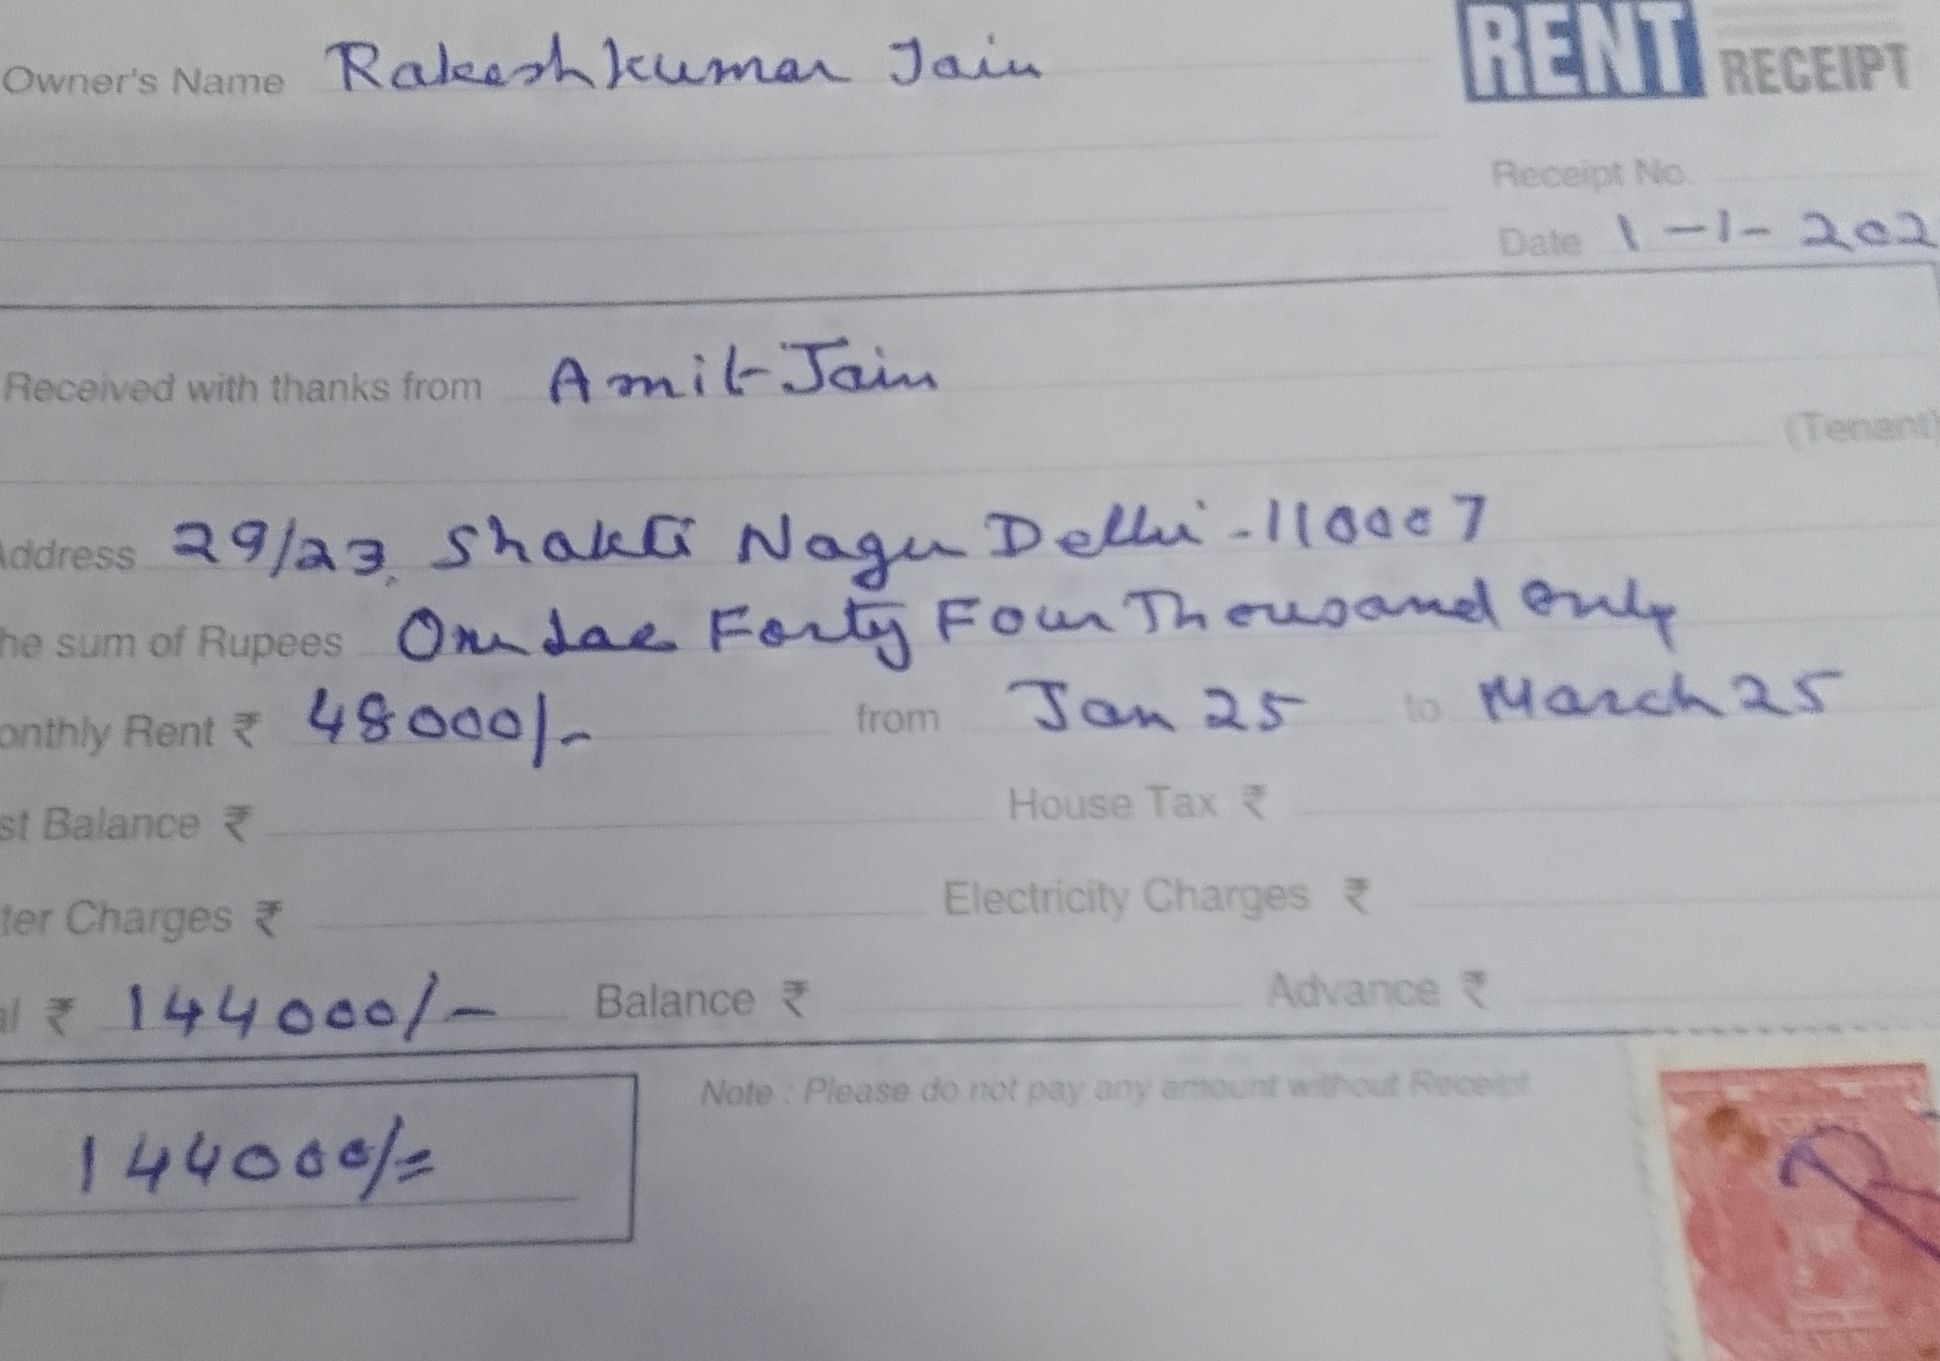 Owner's Name Rakesh kumar Jain
RENT RECEIPT
Receipt No.
Date 1-1-202
Received with thanks from Amit Jain
(Tenant)
Address 29/23, Shakti Nagar Delhi-110007
he sum of Rupees One Lac Forty Four Thousand only
onthly Rent ₹ 48000/- from Jan 25 to March 25
st Balance ₹ House Tax ₹
ter Charges ₹ Electricity Charges ₹
al ₹ 144000/- Balance ₹ Advance ₹
Note : Please do not pay any amount without Receipt
144000/=